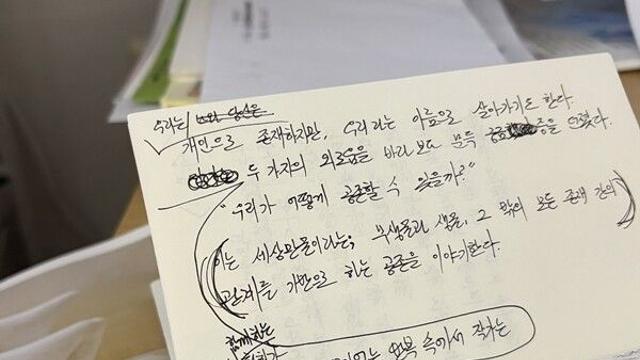 우리는 나와 당신은
개인으로 존재하지만, 우리라는 이름으로 살아가기도 한다.
두 가지의 외로움을 바라보다 문득 증을 느꼈다.
"우리가 어떻게 공존할 수 있을까?"
이는 세상만물이라는, 무생물과 생물, 그 밖의 모든 존재 간의
관계를 기반으로 하는 공존을 이야기한다.
함께하는
속에서 작가는